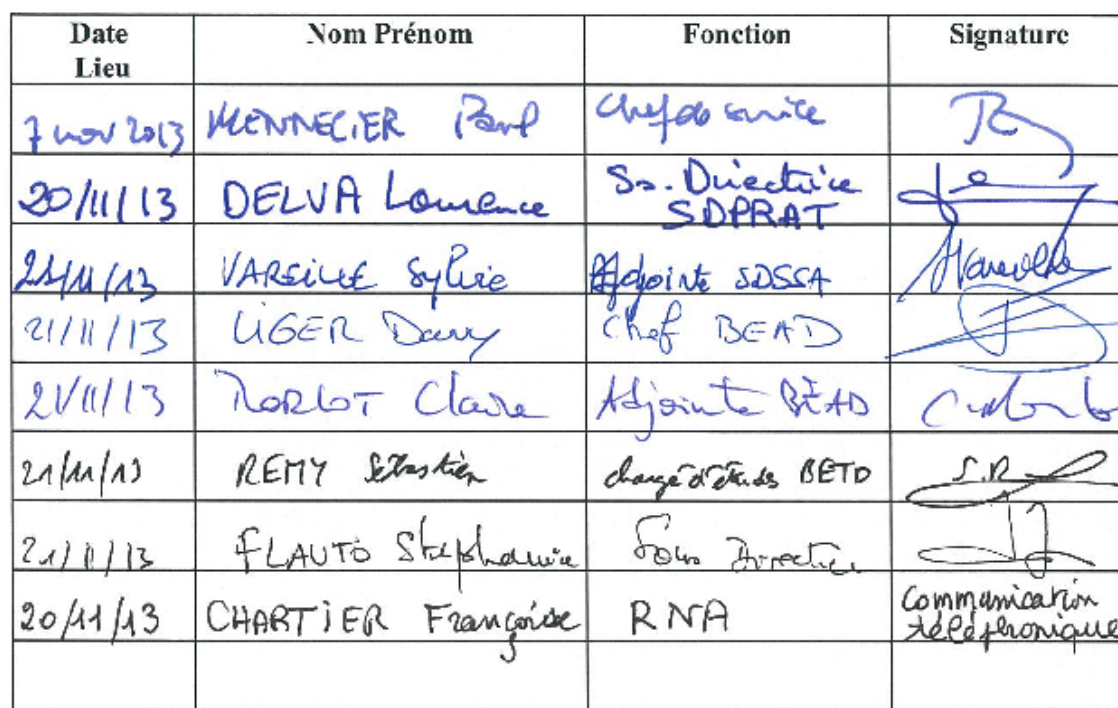 Date Lieu Nom Prénom Fonction Signature
7 nov 2013 MENNECIER Paul Chef de service
20/11/13 DELVA Laurence Ss. Directrice SDPRAT
21/11/13 VAREILLE Sylvie Adjointe SDSSA
21/11/13 LIGER Dany Chef BEAD
21/11/13 Claire Adjointe BEAD
21/11/13 REMY Sébastien chargé d'études BETD S.R
21/11/13 FLAUTO Stéphanie Sous Directrice
20/11/13 CHARTIER Françoise RNA Communication téléphonique